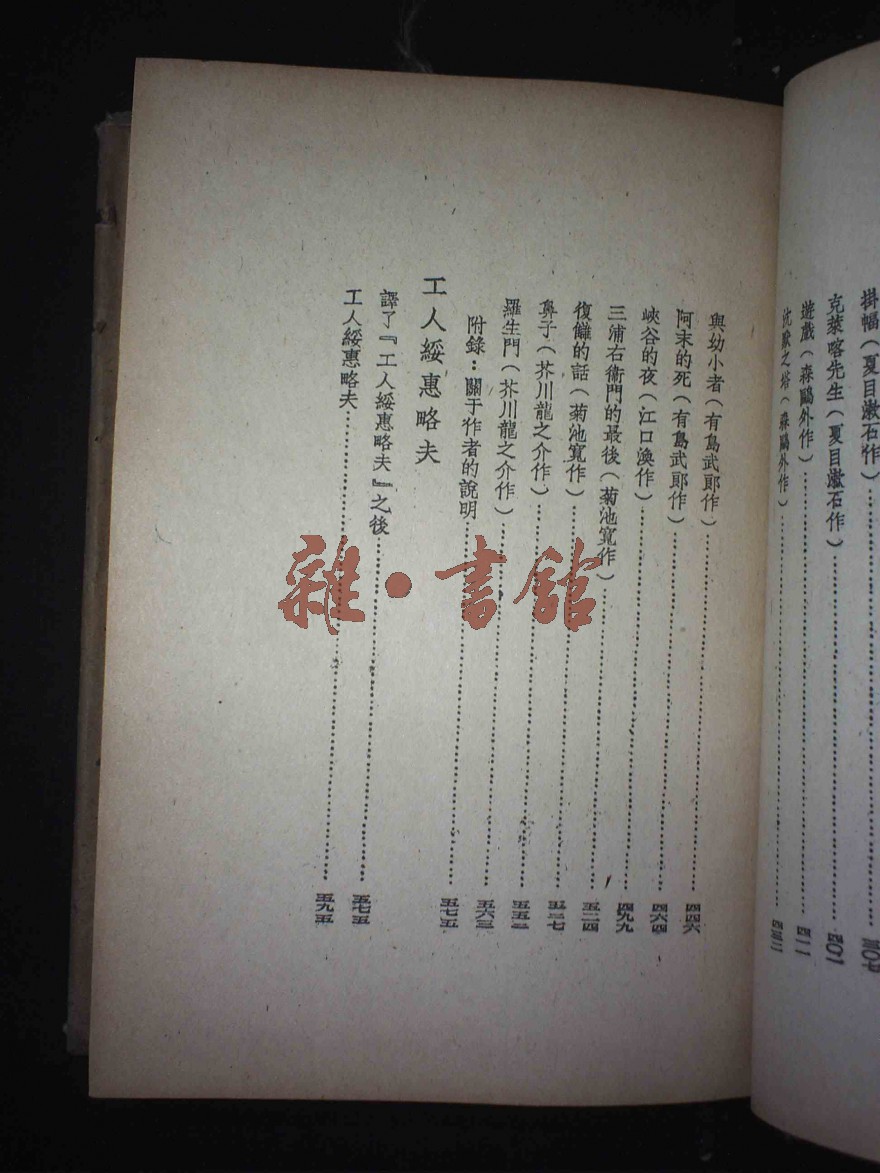 掛幅（夏目漱石作）
克萊喀先生（夏目漱石作）……四〇一
遊戲（森鷗外作）……四一一
沈默之塔（森鷗外作）……四三二
與幼小者（有島武郎作）……四四六
阿末的死（有島武郎作）……四六四
峽谷的夜（江口渙作）……四九九
三浦右衞門的最後（菊池寬作）……五二四
復讎的話（菊池寬作）……五二七
鼻子（芥川龍之介作）……五五二
羅生門（芥川龍之介作）……五六三
附錄：關于作者的說明……五七五
工人綏惠略夫
譯了『工人綏惠略夫』之後……五七五
工人綏惠略夫……五九五
雜·書館